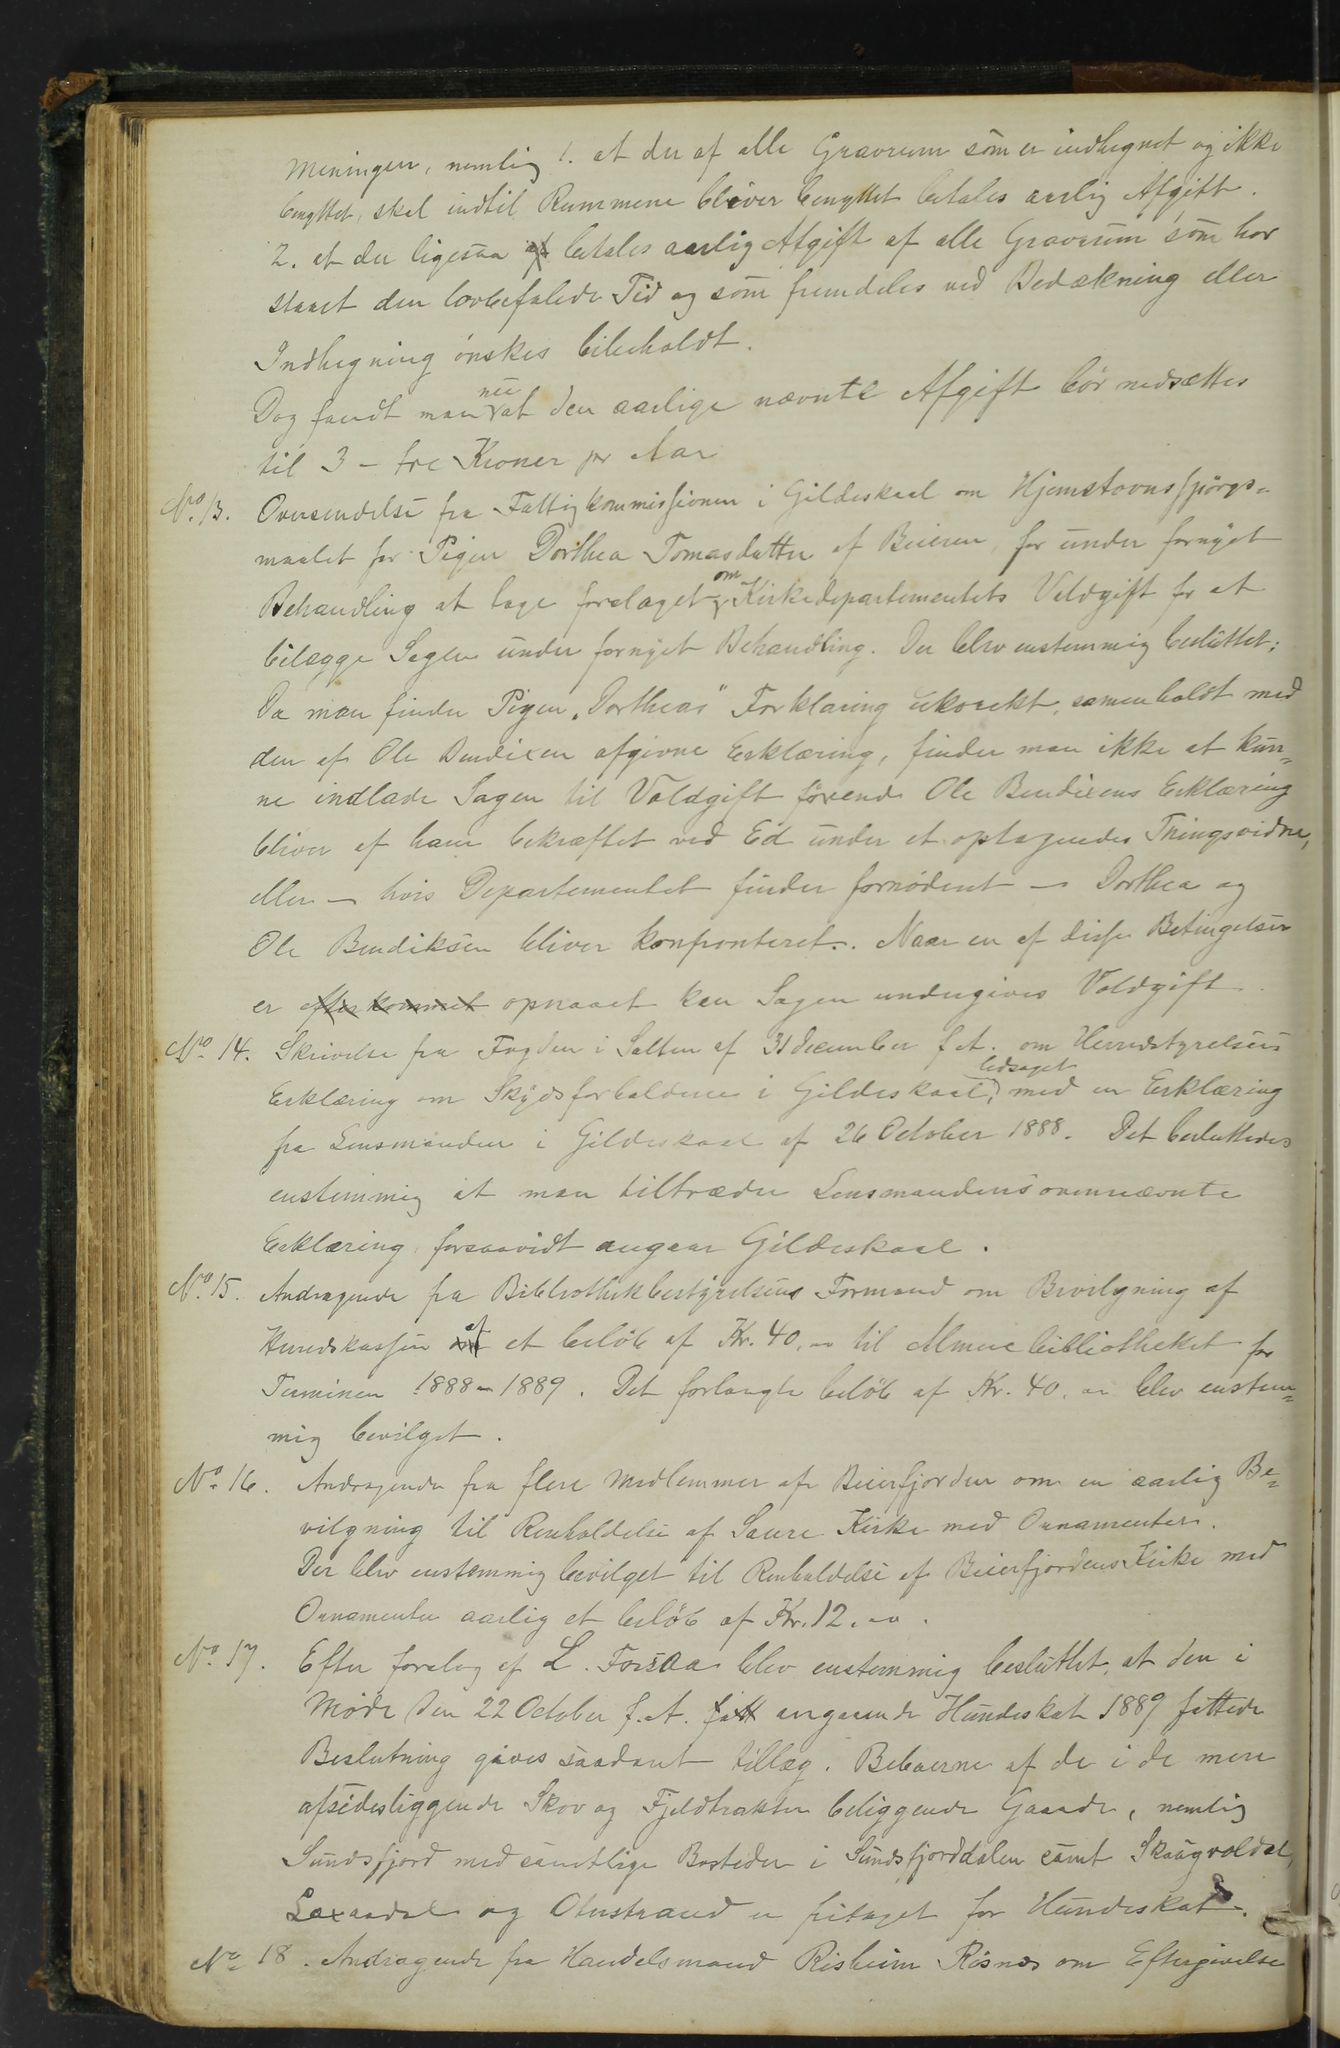 Meningen, nemlig 1. at der af alle Gravrum som er indhegnet og ikke
benyttet, skal indtil Rummene bliver benyttet betales aarlig Afgift.
2. at der ligesaa af betales aarlig Afgift af alle Gravrum som har
staaet den lovbefalede Tid og som fremdeles ved Bedækning eller
Indhegning ønskes bibeholdt.
Dog fandt man nu at den aarlige nævnte Afgift bør nedsættes
til 3 - tre Kroner pr Aar
No. 13. Oversendelse fra Fattigkommissionen i Gildeskaal om Hjemstavnsspörgs-
maalet for Pigen Dorthea Tomasdatter af Beieren, for under fornyet
Behandling at tage forslaget om Kirkedepartementets Voldgift for at
bilægge Sagen under fornyet Behandling. Der blev enstemmig besluttet;
Da man finder Pigen „Dortheas" Forklaring ukorekt, samenholdt med
den af Ole Bendixen afgivne Erklæring, finder man ikke at kun-
ne indlade Sagen til Voldgift førend Ole Bendixens Erklæring
bliver af ham bekræftet ved Ed under et optagendes Thingsvidne,
eller - hvis Departementet finder fornødent - Dorthea og
Ole Bendiksen bliver konfronteret. Naar en af disse Betingelser
er efterkommet opnaaet kan Sagen undergives Voldgift.
No. 14. Skrivelse fra Fogden i Salten af 31 december f. A. om Herredstyrelsens
Erklæring om Skydsforholdene i Gildeskaal, ledsaget med en Erklæring
fra Lensmanden i Gildeskaal af 26 October 1888. Det besluttedes
enstemmig at man tiltræder Lensmandens ovennævnte
Erklæring forsaavidt angaar Gildeskaal.
No. 15. Andragende fra Bibliothekbestyrelsens Formand om Bevilgning af
Herredskassen af et beløb af Kr. 40,00 til Almuebibliotheket for
Terminen 1888-1889. Det forlangte beløb af Kr. 40,00 blev enstem-
mig bevilget.
No. 16. Andragende fra flere Medlemmer af Beierfjorden om en aarlig Be-
vilgning til Renholdelse af Saure Kirke med Ornamenter.
Der blev enstemmig bevilget til Renholdelse af Beierfjordens Kirke med
Ornamenter aarlig et beløb af Kr. 12.00.
No. 17. Efter forslag af L. Forsaa blev enstemmig besluttet, at den i
Møde den 22 October f. A. fatt angaaende Hundeskat 1889 fattede
Beslutning gives saadant tillæg. Beboerne af de i de mere
afsidesliggende Skov og Fjeldtrakter beliggende Gaarde, nemlig
Sundsfjord med samtlige Bosteder i Sundsfjorddalen samt Skaugvoldal,
Laxaadal og Oterstrand er fritaget for Hundeskat.
No. 18. Andragende fra Handelsmand Risheim Rösnes om Eftergivelse